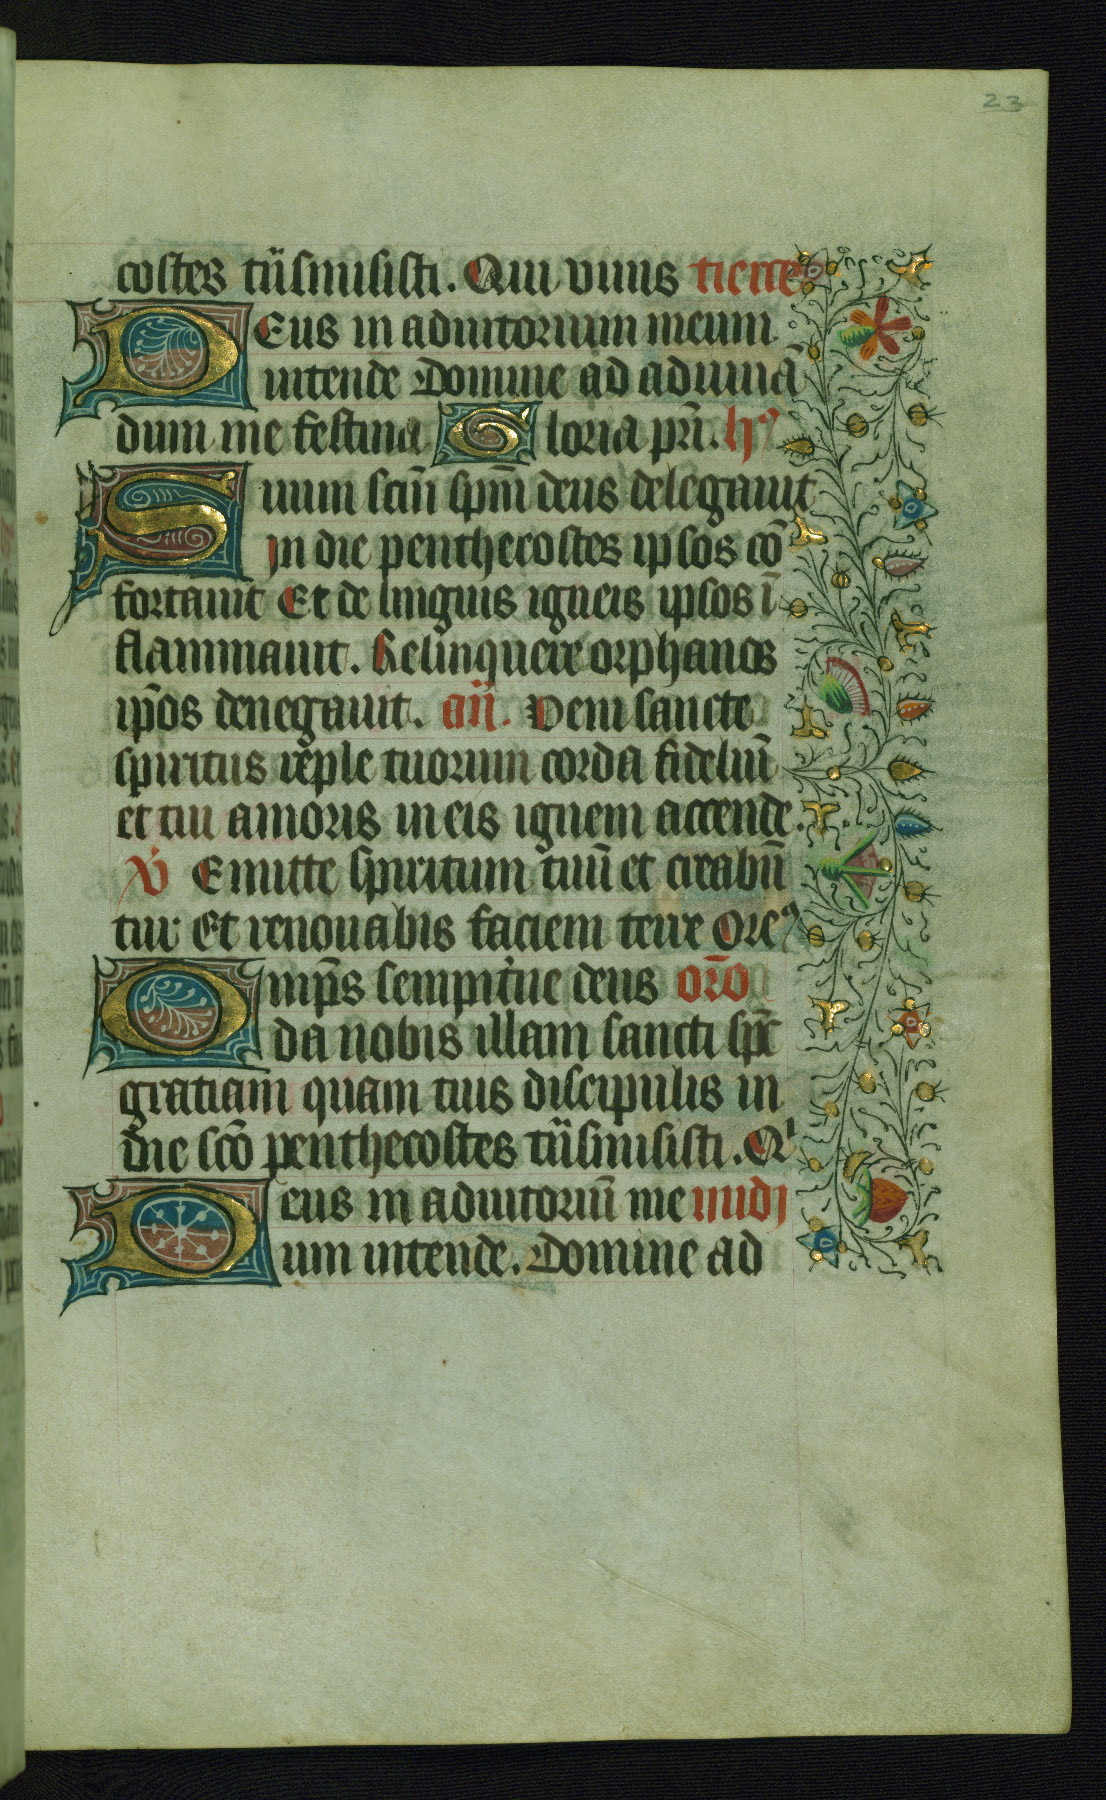 23
costes tũsmisisti. Qui viuis tierce
Deus in adiutorium meum
intende Domine ad adiuuã
dum me festina Gloria pr̃i. hꝰ
Suum sc̃m sp̃m deus delegauit
in die penthecostes ipsos cõ
fortauit Et de linguis igneis ipsos ĩ
flammauit. Relinquere orphanos
ip̃os denegauit. añ. Veni sancte
spiritus reple tuorum corda fideliũ
et tui amoris in eis ignem accende.
v̾ Emitte spiritum tuũ et creabũ
tur Et renouabis faciem terre Oreꝰ
Omp̃s sempit̾ne deus or̃o
da nobis illam sancti sp̃c
gratiam quam tuis discipulis in
die sc̃o penthecostes tũsmisisti. Qⁱ
Deus in adiutoriũ me midi
um intende. Domine ad